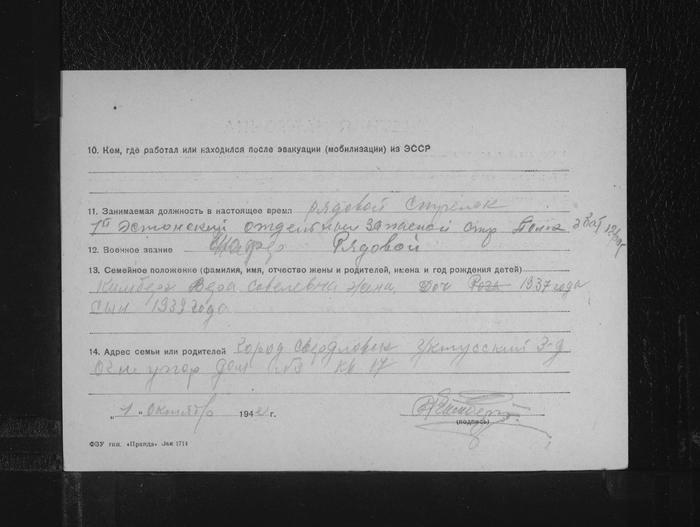 10. Кем, где работал или находился после эвакуации (мобилизации) из ЭССР
11. Занимаемая должность в настоящее время рядовой стрелок
1й Эстонский отдельный запасной стр Полк 3 Бат 12
12. Военное звание Рядовой
13. Семейное положение (фамилия, имя, отчество жены и родителей, имена и год рождения детей)
Кимберг Вера Савелевна жена. Доч 1937 года
Сын 1939 года
14. Адрес семьи или родителей Город Свердловск Уктусский З-д
Огнеупор Дом кв 17
„1" Октябрь 1942 г.
(подпись)
ФЗУ тип. «Правда» Зак 1714